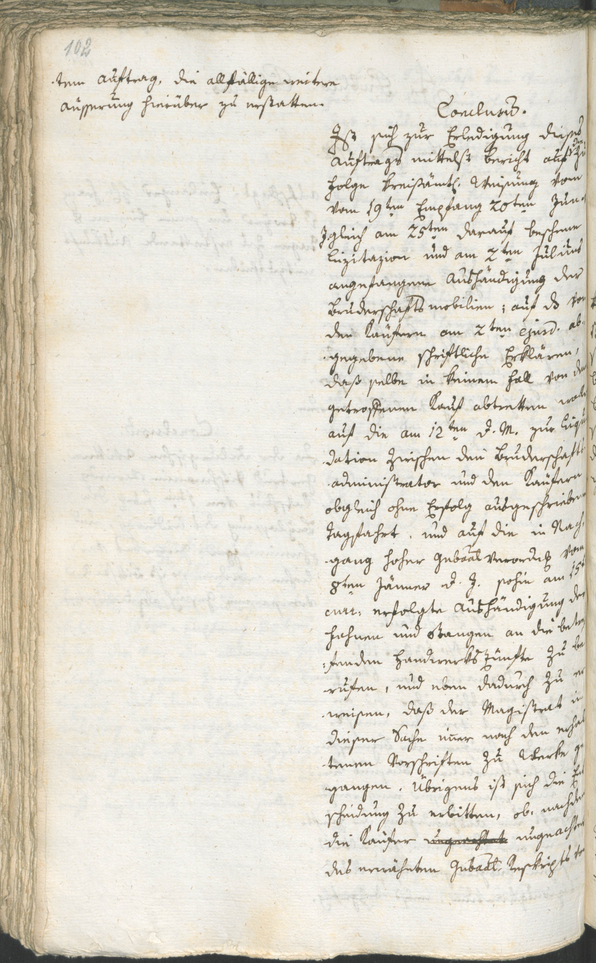 102
tem Auftrag, die allfällige weitere
Äusserung hierüber zu erstatten.
Conclusum.
Ist sich zur Erledigung dieses
Auftrags mittelst Bericht auf
folge kreisämtl. Weisung vom
vom 19ten Empfang 20ten Jun.
gleich am 25ten darauf beschene
Lizitazion und am 2ten Julius
angefangene Aushändigung der
Bruderschaftsmobilien; auf
den Käufern am 2ten ejusd. ab-
gegebene schriftliche Erklären,
daß selbe in keinem Fall von
getroffenen Kauf abtretten
auf die am 12ten d. M. zur Liqui
dation zwischen den Bruderschafts
administrator und den Käufern
obgleich ohne Erfolg ausgeschriebene
Tagsfahrt. und auf die in Nach-
gang hoher Gubaal Verordng vom
8ten Jänner d. J. sohin am 15t
curr: erfolgte Aushändigung der
Fahnen und Stangen an die betre
fenden Handwerkszünfte zu be
rufen, und eben dadurch zu er
weisen, daß der Magistrat in
dieser Sache nur nach den erhal
tenen Vorschriften zu Werke ge
gangen. Übrigens ist sich die
scheidung zu erbitten, ob, nachdem
die Käufer ungeachtet
des erwähnten Gubaal Reskripts